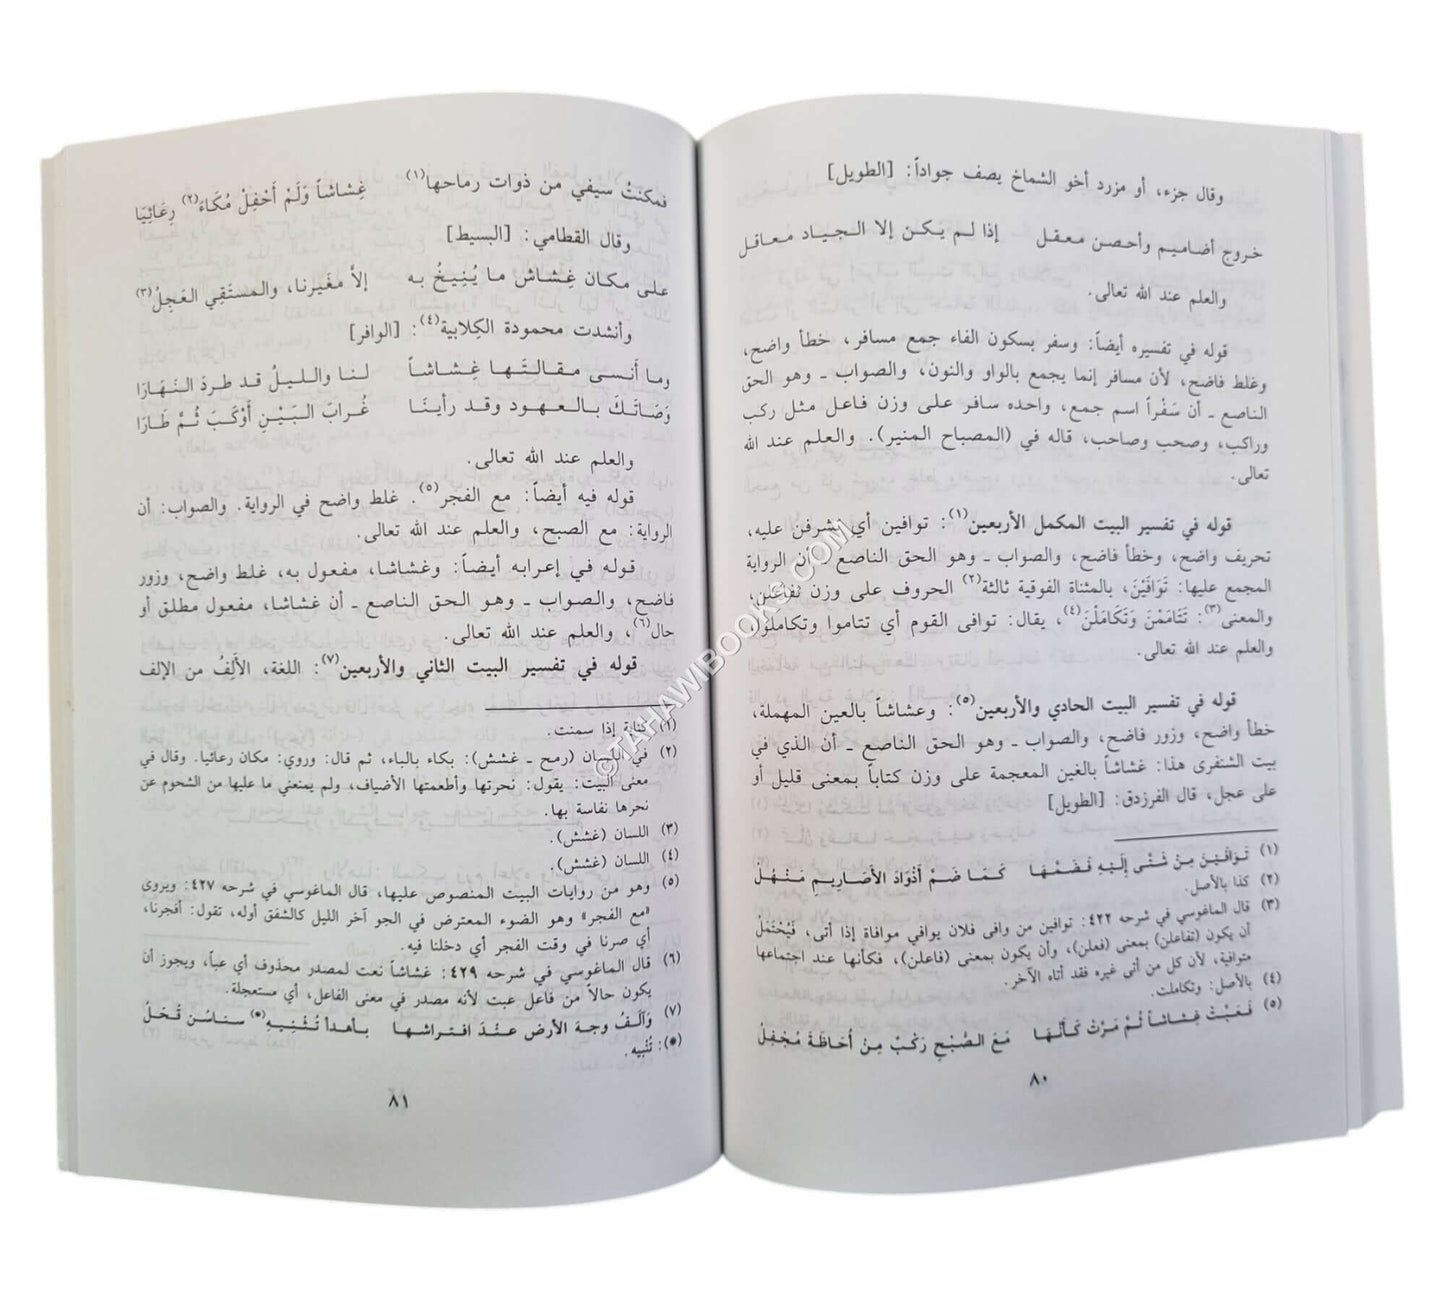 وقال جزء، أو مزرد أخو الشماخ يصف جواداً: [الطويل]
خروج أضاميم وأحصن معقل إذا لم يكن إلا الجياد معاقل
والعلم عند الله تعالى.
قوله في تفسيره أيضاً: وسفر بسكون الفاء جمع مسافر، خطأ واضح،
وغلط فاضح، لأن مسافر إنما يجمع بالواو والنون، والصواب ـ وهو الحق
الناصع ـ أن سَفْراً اسم جمع، واحده سافر على وزن فاعل مثل ركب
وراكب، وصحب وصاحب، قاله في (المصباح المنير). والعلم عند الله
تعالى.
قوله في تفسير البيت المكمل الأربعين(١): توافين أي يشرفن عليه،
تحريف واضح، وخطأ فاضح، والصواب ـ وهو الحق الناصع ـ أن الرواية
المجمع عليها: تَوَافَيْنَ، بالمثناة الفوقية ثالثة(٢) الحروف على وزن تفاعلن،
والمعنى(٣): تَتَامَمْنَ وَتَكَامَلْنَ(٤)، يقال: توافى القوم أي تتاموا وتكاملوا،
والعلم عند الله تعالى.
قوله في تفسير البيت الحادي والأربعين(٥): وعشاشاً بالعين المهملة،
خطأ واضح، وزور فاضح، والصواب ـ وهو الحق الناصع ـ أن الذي في
بيت الشنفرى هذا: غشاشاً بالغين المعجمة على وزن كتاباً بمعنى قليل أو
على عجل، قال الفرزدق: [الطويل]
(١) تَوَافَيْنَ مِنْ شَتَّى إِلَيْهِ فَضَمَّهَا كَمَا ضَمَّ أَذْوَادَ الأَصَارِيمِ مَنْهَلُ
(٢) كذا بالأصل.
(٣) قال الماغوسي في شرحه ٤٢٢: توافين من وافى فلان يوافي موافاة إذا أتى، فَيُحْتَمَلُ
أن يكون (تفاعلن) بمعنى (فعلن)، وأن يكون بمعنى (فاعلن)، فكأنها عند اجتماعها
متوافية، لأن كل من أتى غيره فقد أتاه الآخر.
(٤) بالأصل: وتكاملت.
(٥) فَعَبَّتْ غِشَاشاً ثُمَّ مَرَّتْ كَأَنَّهَا مَعَ الصُّبْحِ رَكْبٌ مِنْ أُحَاظَةَ مُجْفِلُ
٨٠
فمكنتُ سيفي من ذوات رماحها(١) غِشاشاً وَلَمْ أَحْفِلْ مُكَاءَ(٢) رِعَائِيَا
وقال القطامي: [البسيط]
على مكان غِشاش ما يُنِيخُ به إلاَّ مغَيرنا، والمستَقِي العَجِلُ(٣)
وأنشدت محمودة الكِلابية(٤): [الوافر]
وما أَنسى مقالتَها غِشاشاً لنا والليلُ قد طردَ النَهَارَا
وَصَاتَكَ بالعهود وقد رأينَا غُرابَ البَيْنِ أَوْكَبَ ثُمَّ طَارَا
والعلم عند الله تعالى.
قوله فيه أيضاً: مع الفجر(٥). غلط واضح في الرواية. والصواب: أن
الرواية: مع الصبح، والعلم عند الله تعالى.
قوله في إعرابه أيضاً: وغشاشا، مفعول به، غلط واضح، وزور
فاضح، والصواب ـ وهو الحق الناصع ـ أن غشاشا، مفعول مطلق أو
حال(٦)، والعلم عند الله تعالى.
قوله في تفسير البيت الثاني والأربعين(٧): اللغة، الأَلِفُ من الإلف
(١) كناية إذا سمنت.
(٢) في اللسان (رمح ـ غشش): بكاء بالباء، ثم قال: وروي: مكان رعائيا. وقال في
معنى البيت: يقول: نحرتها وأطعمتها الأضياف، ولم يمنعني ما عليها من الشحوم عن
نحرها نفاسة بها.
(٣) اللسان (غشش).
(٤) اللسان (غشش).
(٥) وهو من روايات البيت المنصوص عليها، قال الماغوسي في شرحه ٤٢٧: ويروى
«مع الفجر» وهو الضوء المعترض في الجو آخر الليل كالشفق أوله، تقول: أفجرنا،
أي صرنا في وقت الفجر أي دخلنا فيه.
(٦) قال الماغوسي في شرحه ٤٢٩: غشاشاً نعت لمصدر محذوف أي عباً، ويجوز أن
يكون حالاً من فاعل عبت لأنه مصدر في معنى الفاعل، أي مستعجلة.
(٧) وَآلَفُ وجهَ الأرضِ عنْدَ افتراشها بأهدأ تُثْنِيهِ(*) سناسُن قُحْلُ
(*): تُنْبِيه.
٨١
© TAHAWIBOOKS.COM